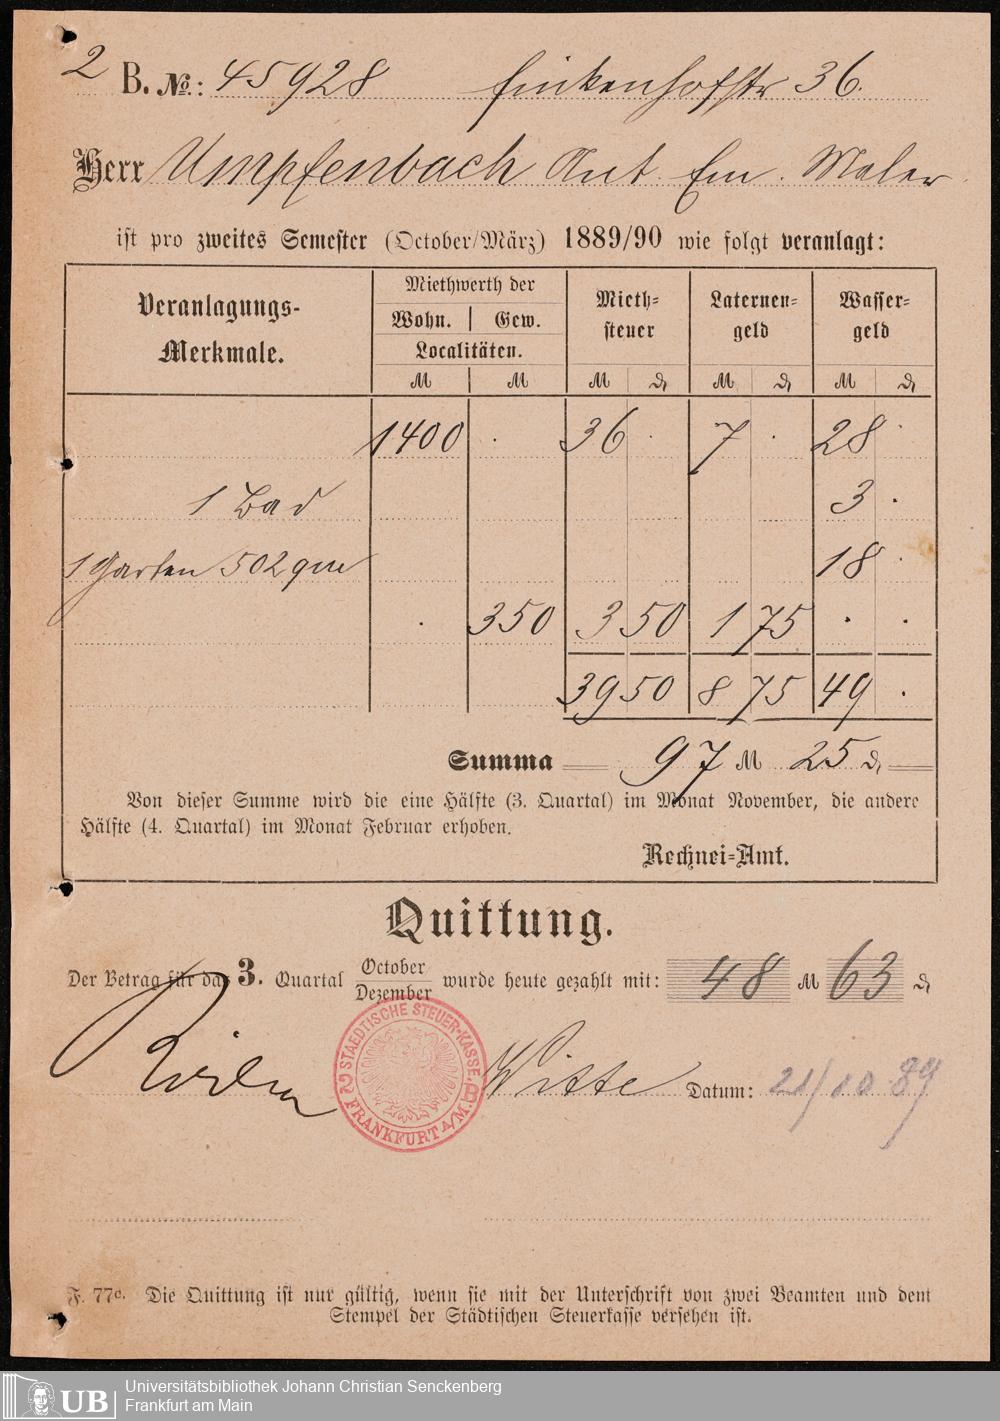 2 B. No.: 45928 Finkenhofstr 36.
Herr Umpfenbach Ant. Em. Maler
ist pro zweites Semester (October/März) 1889/90 wie folgt veranlagt:
Veranlagungs-Merkmale. Miethwerth der Mieth-steuer Laternen-geld Wasser-geld
Wohn. Gew.
Localitäten.
M M M ₰ M ₰ M ₰
1400 . 36 . 7 . 28 .
1 Bad 3 .
1 Garten 502 qm 18 .
. 350 3 50 1 75 . .
39 50 8 75 49 .
Summa 97 M 25 ₰
Von dieser Summe wird die eine Hälfte (3. Quartal) im Monat November, die andere
Hälfte (4. Quartal) im Monat Februar erhoben.
Rechnei-Amt.
Quittung.
Der Betrag für das 3. Quartal October Dezember wurde heute gezahlt mit: 48 M 63 ₰
STAEDTISCHE STEUER-KASSE. B
2 FRANKFURT A/M.
Witte Datum: 21/10 89
F. 77c. Die Quittung ist nur gültig, wenn sie mit der Unterschrift von zwei Beamten und dem
Stempel der Städtischen Steuerkasse versehen ist.
UB Universitätsbibliothek Johann Christian Senckenberg
Frankfurt am Main